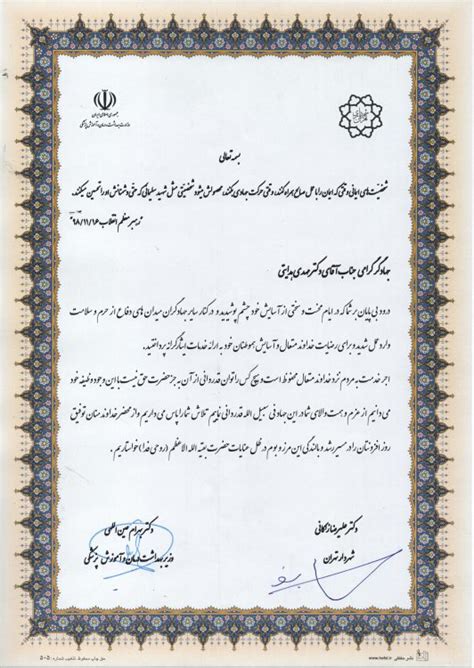 جمهوری اسلامی ایران
وزارت بهداشت، درمان و آموزش پزشکی
بسمه تعالی
شخصیت‌های ایمانی وقتی که ایمان را با عمل صالح همراه کنند، وقتی حرکت جهادی بکنند، محصولش میشود شخصیتی مثل شهید سلیمانی که حتی دشمنانش او را تحسین میکنند.
رهبر معظم انقلاب ۹۸/۱۱/۱۶
جهادگر گرامی جناب آقای دکتر مهدی هدایتی
درود بی پایان بر شما که در ایام محنت و سختی از آسایش خود چشم پوشیدید و در کنار سایر جهادگران میدان های دفاع از حرم و سلامت
وارد عمل شدید و برای رضایت خداوند متعال و آسایش هموطنان خود به ارائه خدمات ایثارگرانه پرداختید.
اجر خدمت به مردم نزد خداوند متعال محفوظ است و هیچ کس را توان قدردانی از آن به جز حضرت حق نیست با این وجود وظیفه خود
می دانیم از عزم و همت والای شما در این جهاد فی سبیل الله قدردانی نماییم تلاش شما را پاس می داریم و از محضر خداوند منان توفیق
روز افزونتان را در مسیر رشد و بالندگی این مرز و بوم در ظل عنایات حضرت بقیه الله الاعظم (روحی فدا) خواستاریم.
دکتر علیرضا زاکانی
شهردار تهران
دکتر بهرام عین اللهی
وزیر بهداشت درمان و آموزش پزشکی